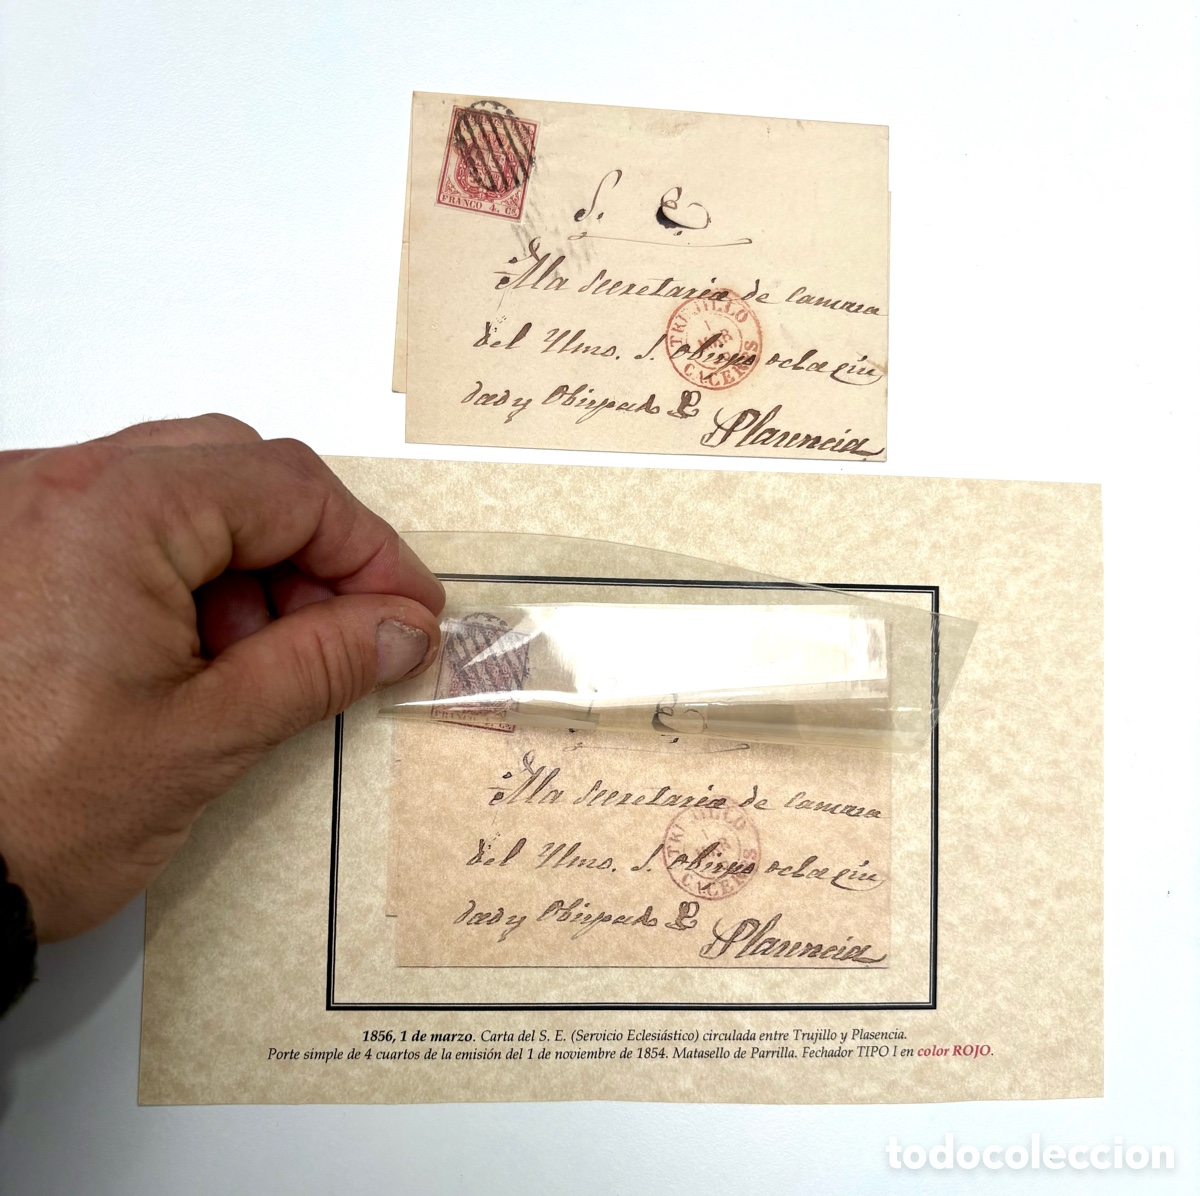 FRANCO 4. Cs.
S. E.
A la Secretaria de Camara
TRUJILLO
1 MAR
CACERES
del Ylmo. S. Obispo de la Ciu
dad y Obispado
Plasencia
FRANCO 4. Cs.
A la Secretaria de Camara
TRUJILLO
1 MAR
CACERES
del Ylmo. S. Obispo de la Ciu
dad y Obispado
Plasencia
1856, 1 de marzo. Carta del S. E. (Servicio Eclesiástico) circulada entre Trujillo y Plasencia.
Porte simple de 4 cuartos de la emisión del 1 de noviembre de 1854. Matasello de Parrilla. Fechador TIPO I en color ROJO.
todocoleccion